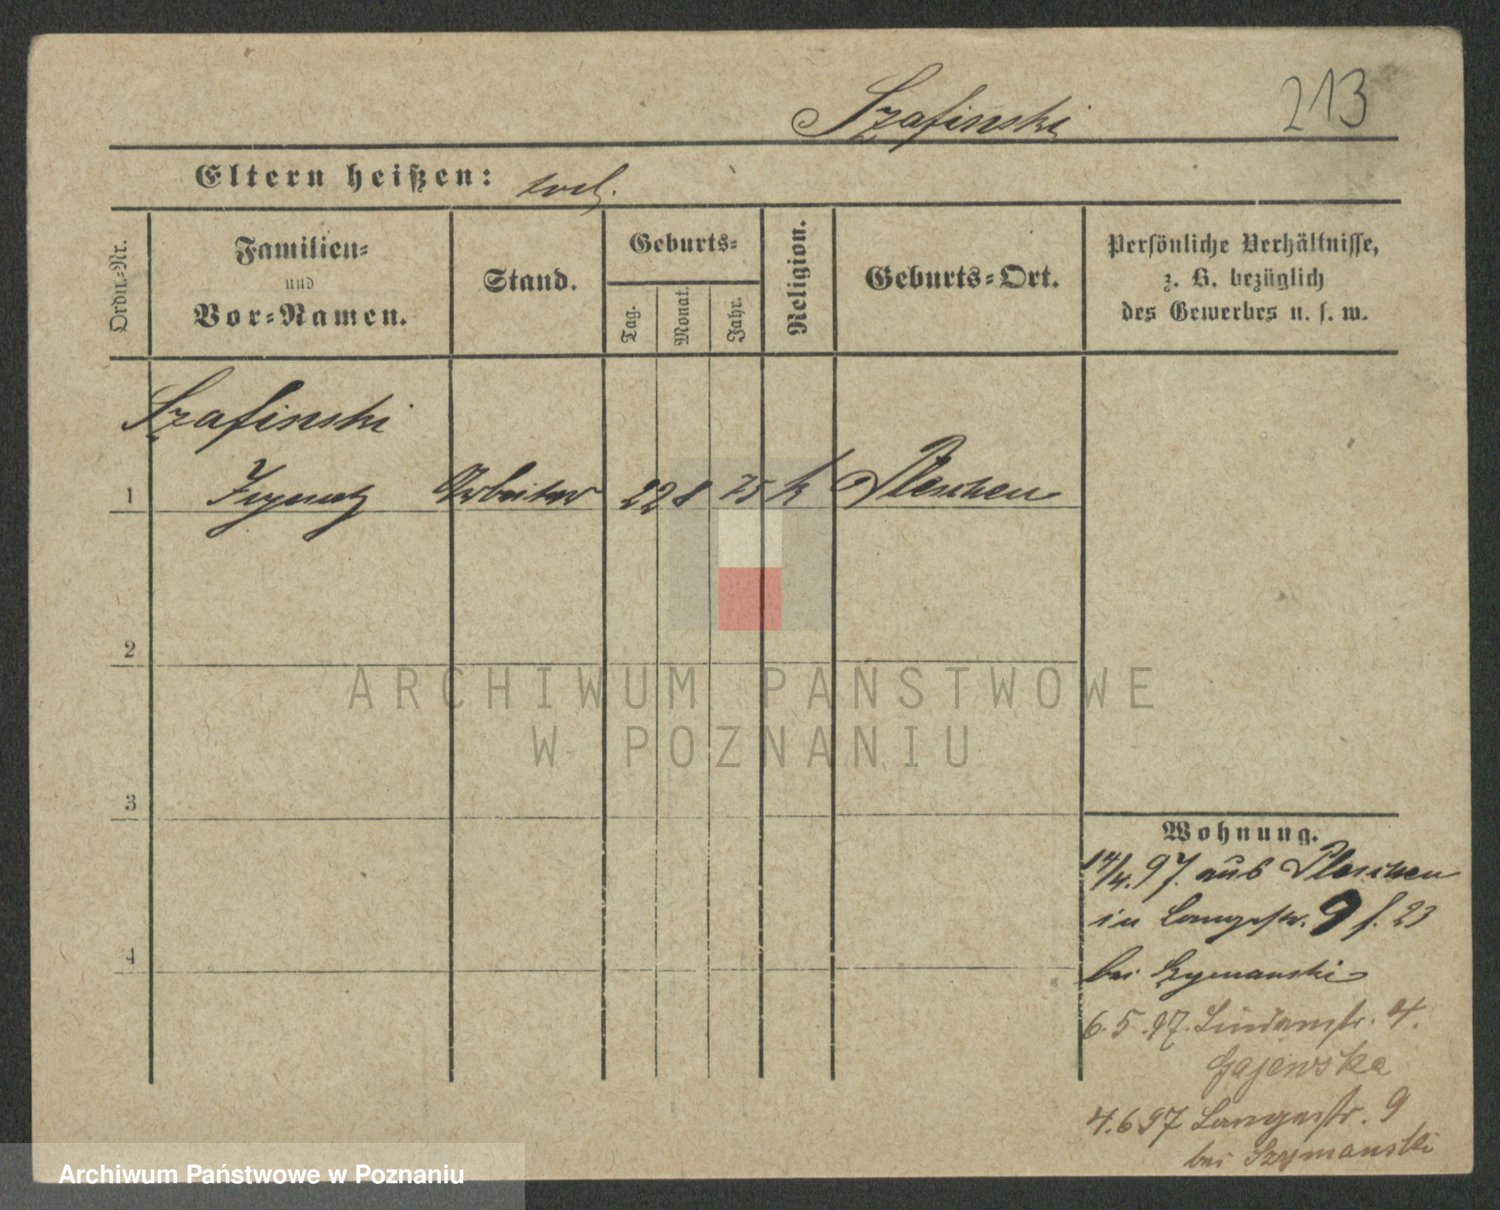 Szafinski
213
Eltern heißen: tod.
Ordn.-Nr.
Familien-
und
Vor-Namen.
Stand.
Geburts-
Tag.
Monat.
Jahr.
Religion.
Geburts-Ort.
Persönliche Verhältnisse,
z. B. bezüglich
des Gewerbes u. s. w.
Szafinski
1 Arbeiter 22 8 75 k Pleschen
2
ARCHIWUM PAŃSTWOWE
W POZNANIU
3
Wohnung.
14/4. 97. aus Pleschen
in Langestr. 9 f. 23
bei Szymanski
4
6. 5. 97. Lindenstr. 4.
Gajewska
4. 6 97 Langestr. 9
bei Szymanski
Archiwum Państwowe w Poznaniu